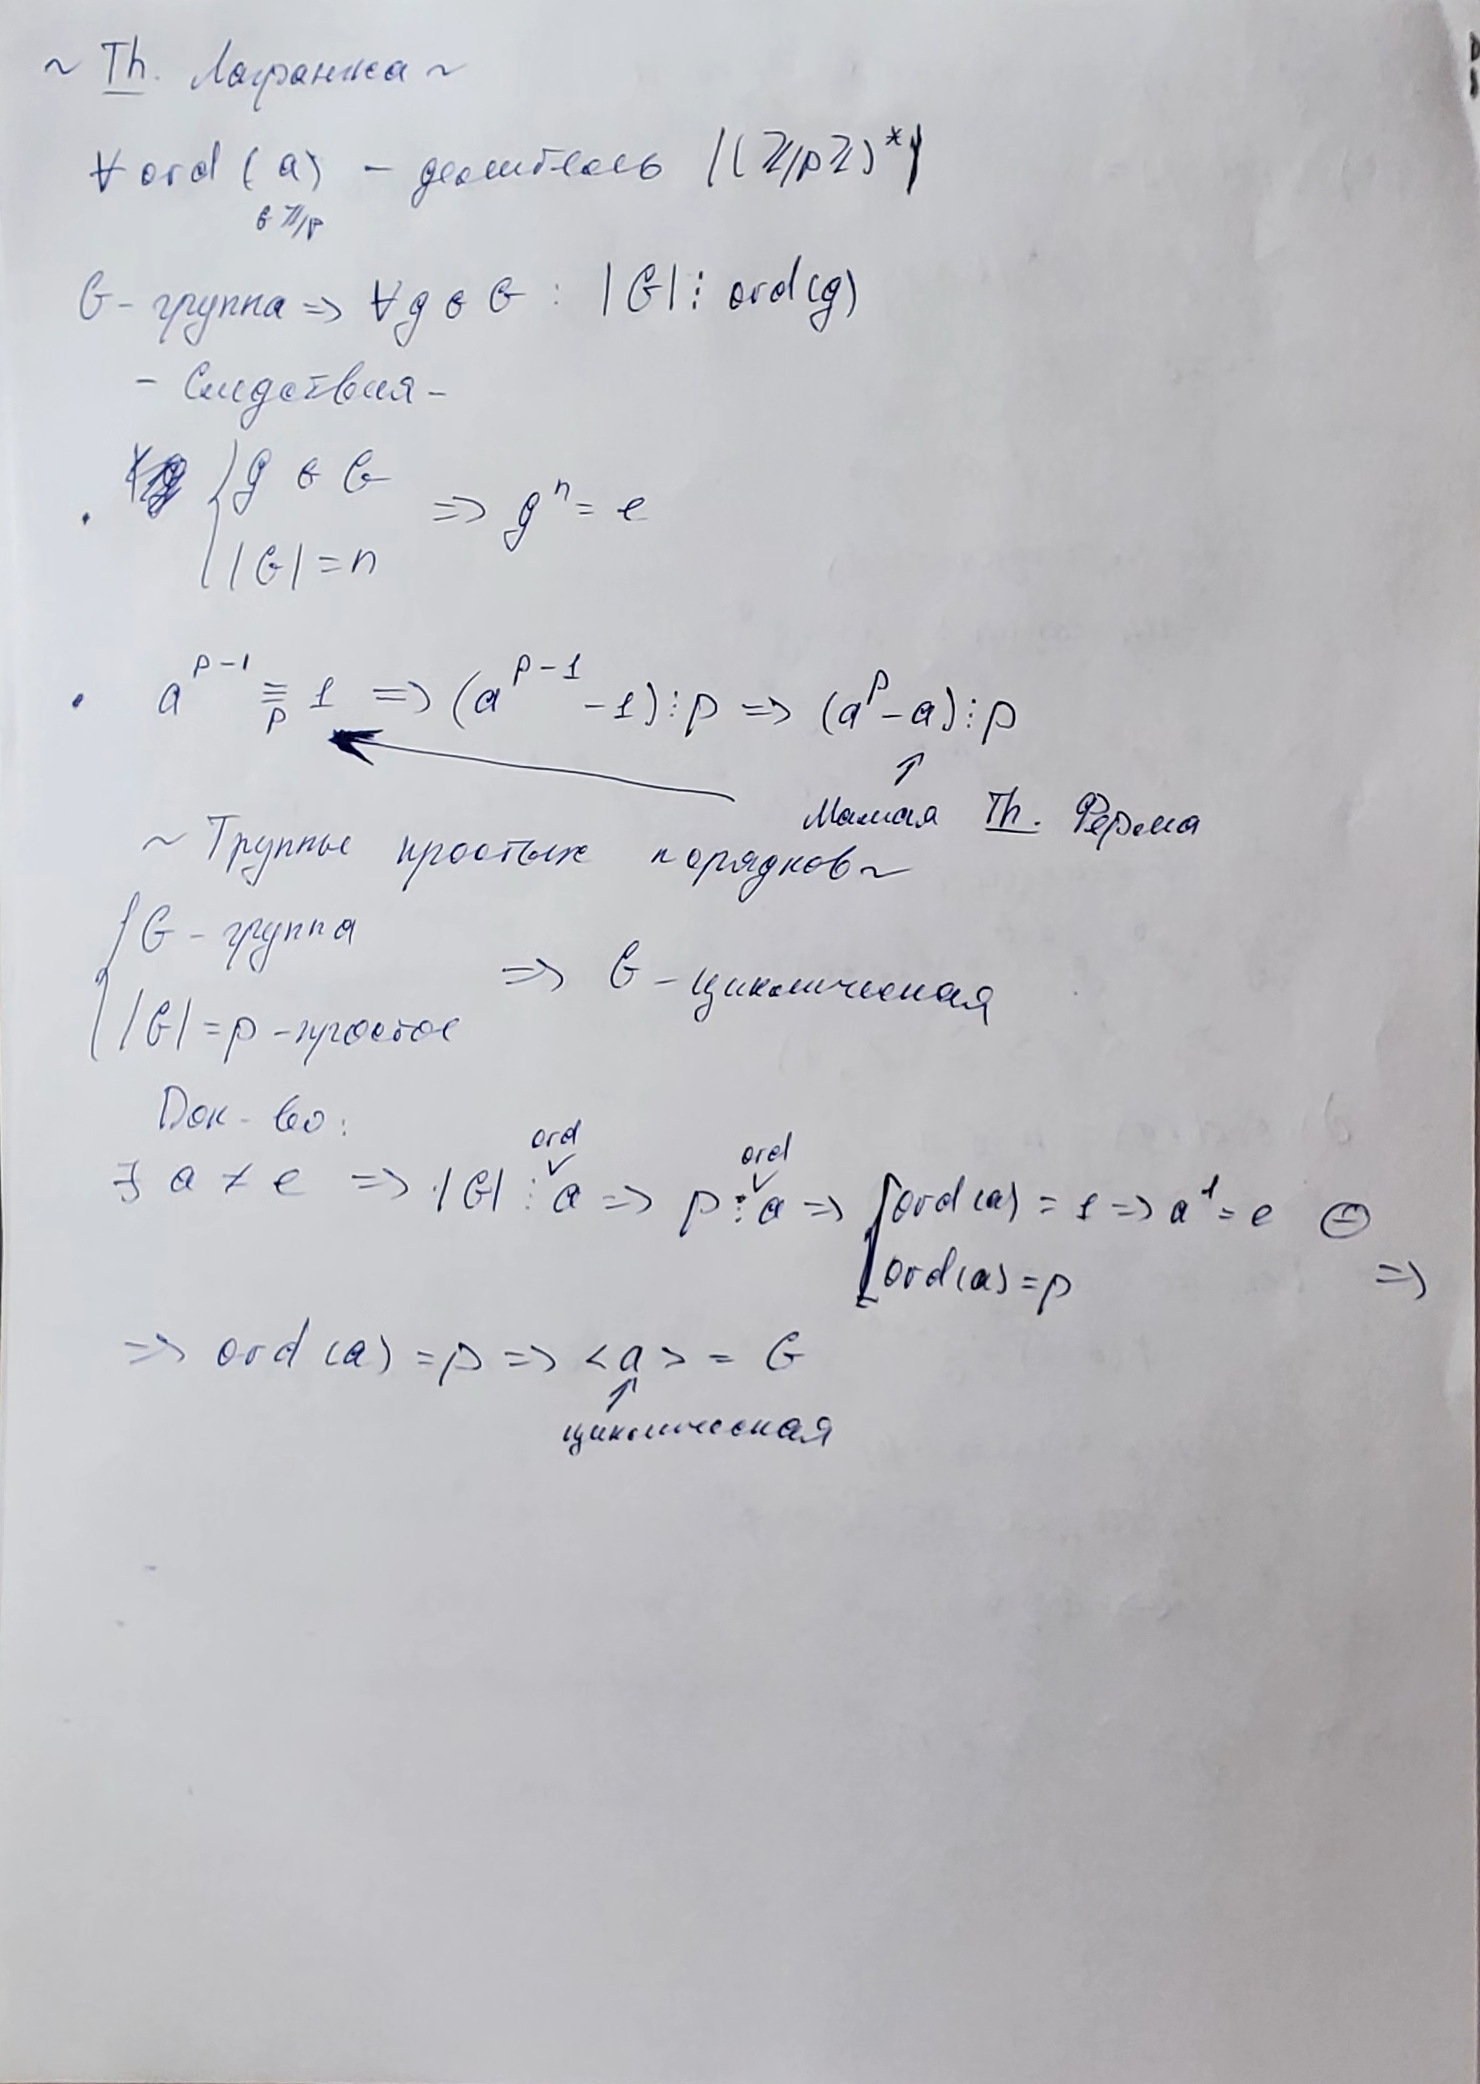 ~ Th. Лагранжа ~
∀ ord(a) – делитель |(ℤ/pℤ)*|
в ℤ/p
G – группа => ∀g в G : |G| ⋮ ord(g)
– Следствия –
{ g в G
|G| = n => gⁿ = e
· a^(p-1) ≡_p 1 => (a^(p-1) - 1) ⋮ p => (a^p - a) ⋮ p
↑
Малая Th. Ферма
~ Группы простых порядков ~
{ G – группа
|G| = p – простое => G – циклическая
Док-во:
∃ a ≠ e => |G| ⋮ ord a => p ⋮ ord a => [ ord(a) = 1 => a¹ = e ⊖
ord(a) = p =>
=> ord(a) = p => <a> = G
↑
циклическая